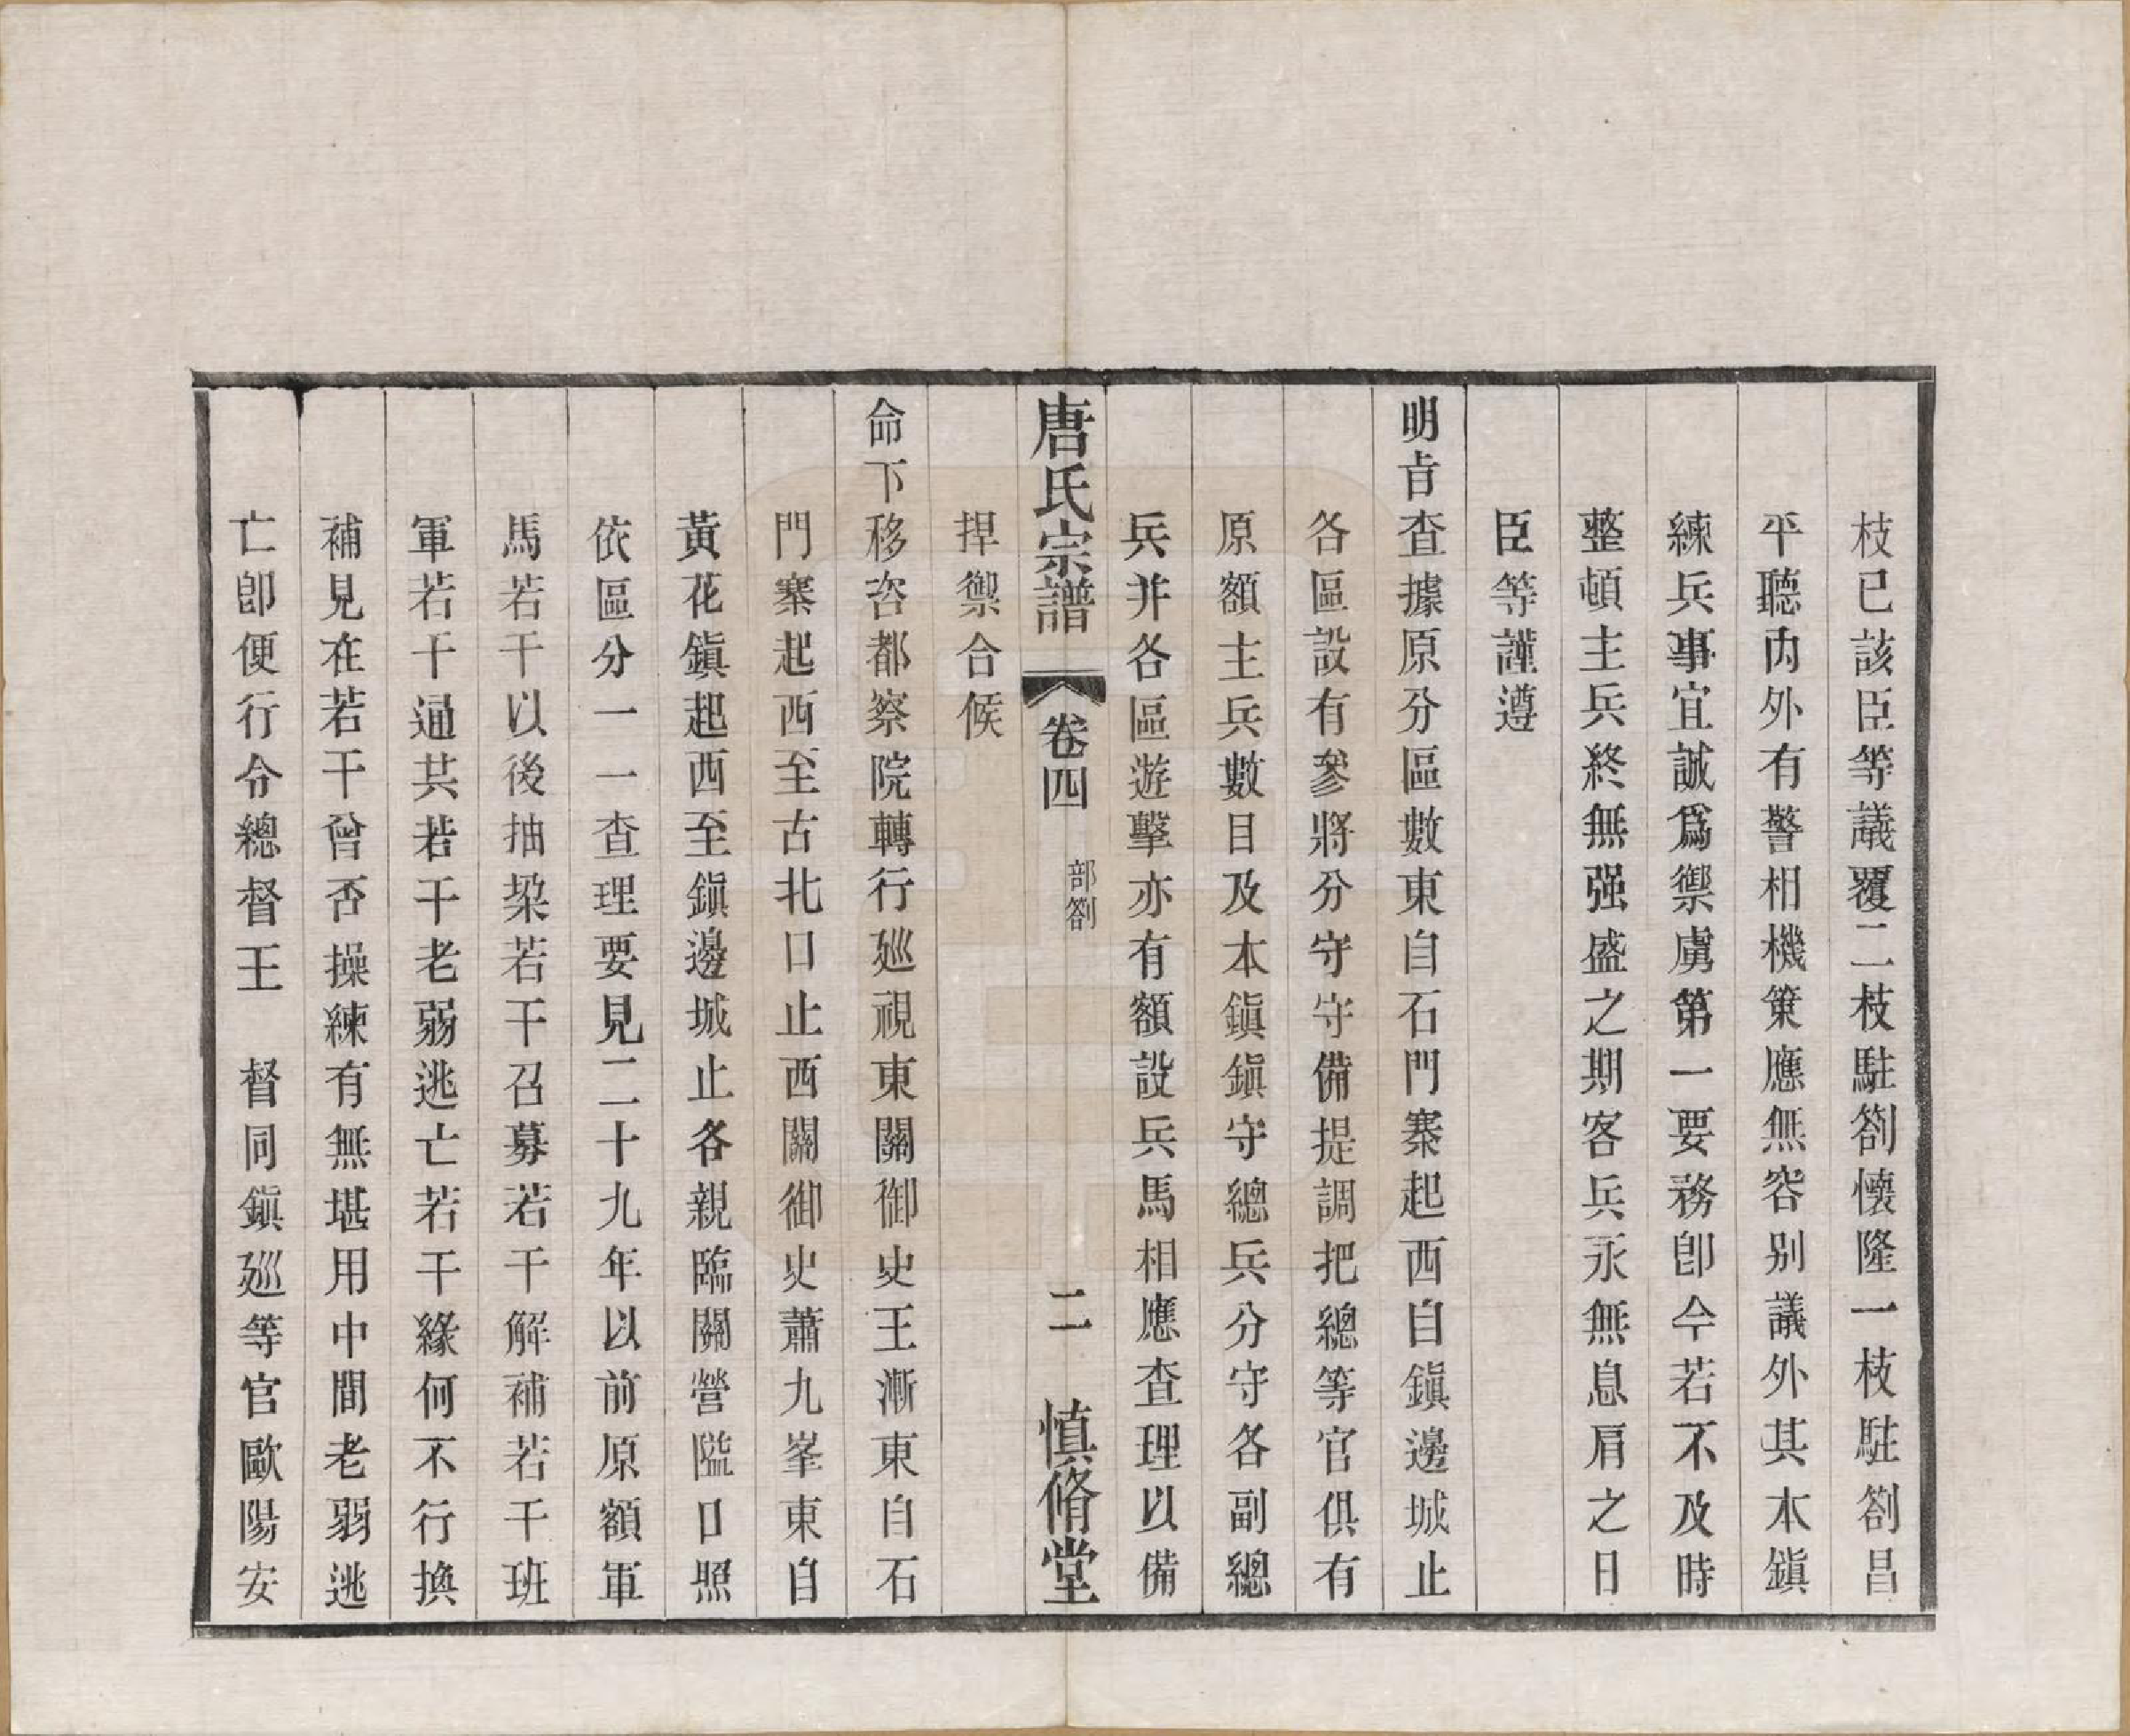 枝已該臣等議覆二枝駐劄懷隆一枝駐劄昌
平聽內外有警相機策應無容别議外其本鎮
練兵事宜誠爲禦虜第一要務卽今若不及時
整頓主兵終無强盛之期客兵永無息肩之日
臣等謹遵
明旨查據原分區數東自石門寨起西自鎮邊城止
各區設有參將分守守備提調把總等官俱有
原額主兵數目及本鎮鎮守總兵分守各副總
兵并各區遊擊亦有額設兵馬相應查理以備
唐氏宗譜 卷四 部劄 二 慎脩堂
捍禦合候
命下移咨都察院轉行廵視東關御史王漸東自石
門寨起西至古北口止西關御史蕭九峯東自
黃花鎮起西至鎮邊城止各親臨關營隘口照
依區分一一查理要見二十九年以前原額軍
馬若干以後抽垜若干召募若干解補若干班
軍若干通共若干老弱逃亡若干緣何不行換
補見在若干曾否操練有無堪用中間老弱逃
亡卽便行令總督王　督同鎮廵等官歐陽安